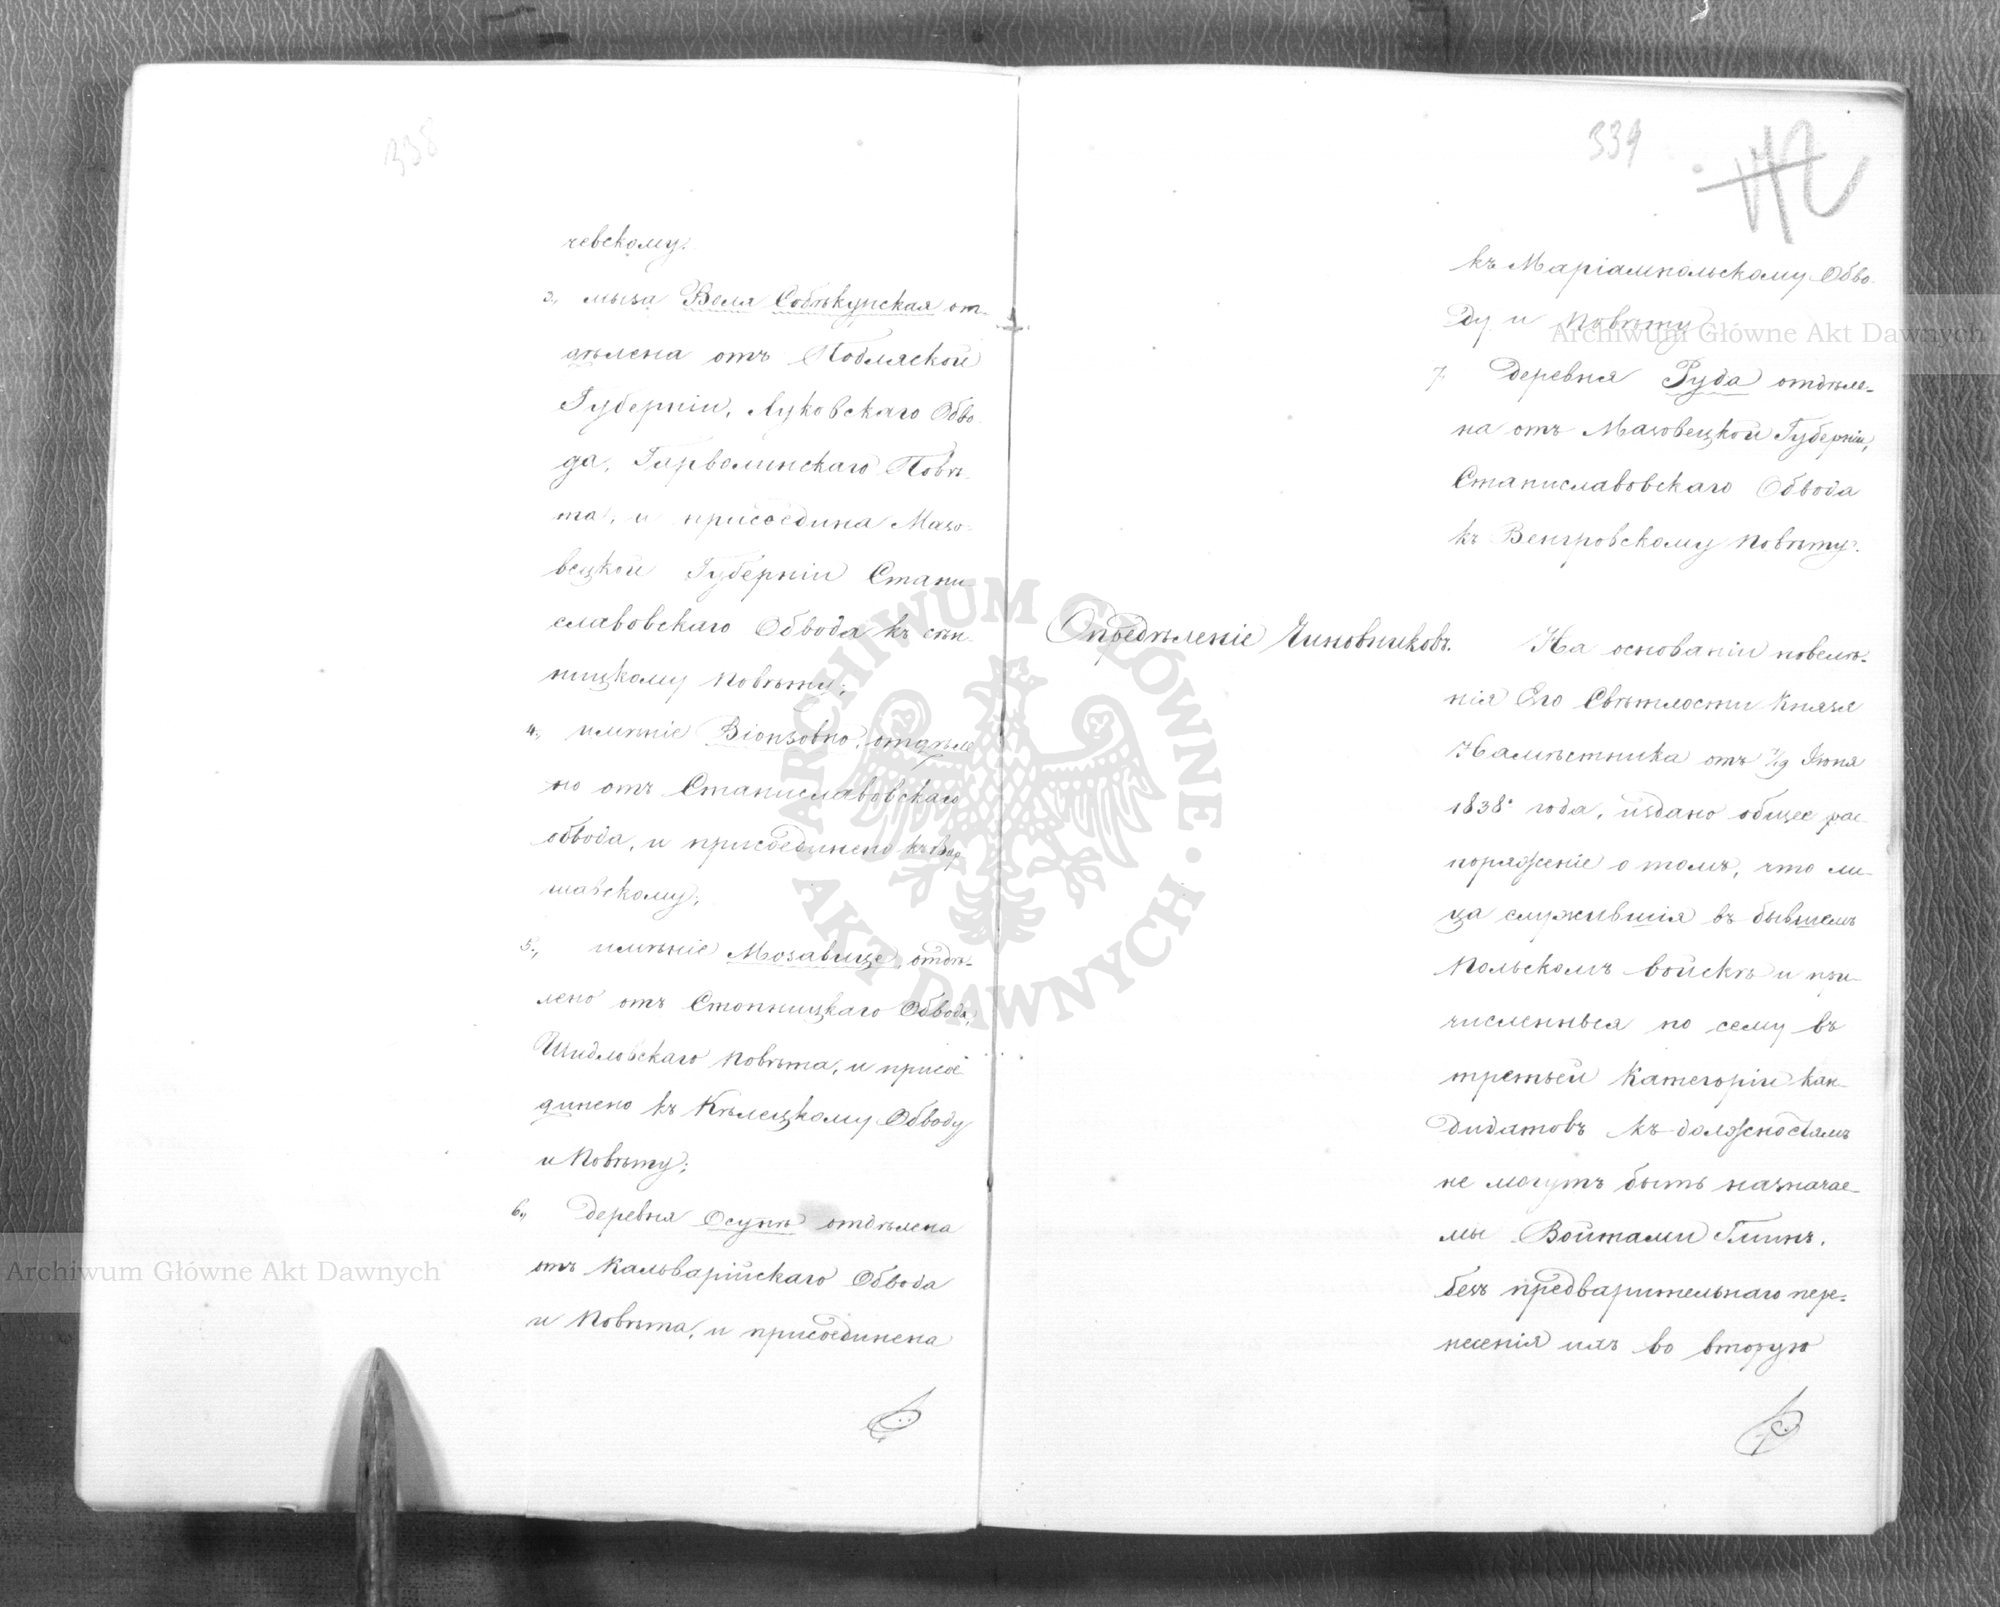 338
чевскому.
3., мыза Воля Собѣкурская от-
дѣлена отъ Подляской
Губерніи, Луковскаго Обво-
да, Гарволинскаго Повѣ-
та, и присоединена Мазо-
вецкой Губерніи Стани-
славовскаго Обвода къ сѣн-
ницкому повѣту;
4., имѣніе Віонзовно, отдѣле
но отъ Станиславовскаго
обвода, и присоединено къ Вар
шавскому;
5., имѣніе Мозавице, отдѣ-
лено отъ Стопницкаго Обвода,
Шидловскаго повѣта, и присое
динено къ Кѣлецкому Обводу
и Повѣту;
6., деревня Осупѣ отдѣлена
отъ Кальварійскаго Обвода
и Повѣта, и присоединена
339
къ Маріампольскому Обво-
ду и Повѣту
7. деревня Руда отдѣле-
на отъ Мазовецкой Губерніи,
Станиславовскаго Обвода
къ Венгровскому повѣту.
Опредѣленіе Чиновниковъ.
На основаніи повелѣ-
нія Его Свѣтлости Князя
Намѣстника отъ 7/19 Іюня
1838 года, издано общее рас-
поряженіе о томъ, что ли-
ца служившія въ бывшемъ
Польскомъ войскѣ и при-
численныя по сему въ
третьей категоріи кан-
дидатовъ къ должностямъ
не могутъ быть назначае-
мы Войтами Гминъ,
безъ предварительнаго пере-
несенія ихъ во вторую
Archiwum Główne Akt Dawnych
Archiwum Główne Akt Dawnych
ARCHIWUM GŁÓWNE · AKT DAWNYCH ·